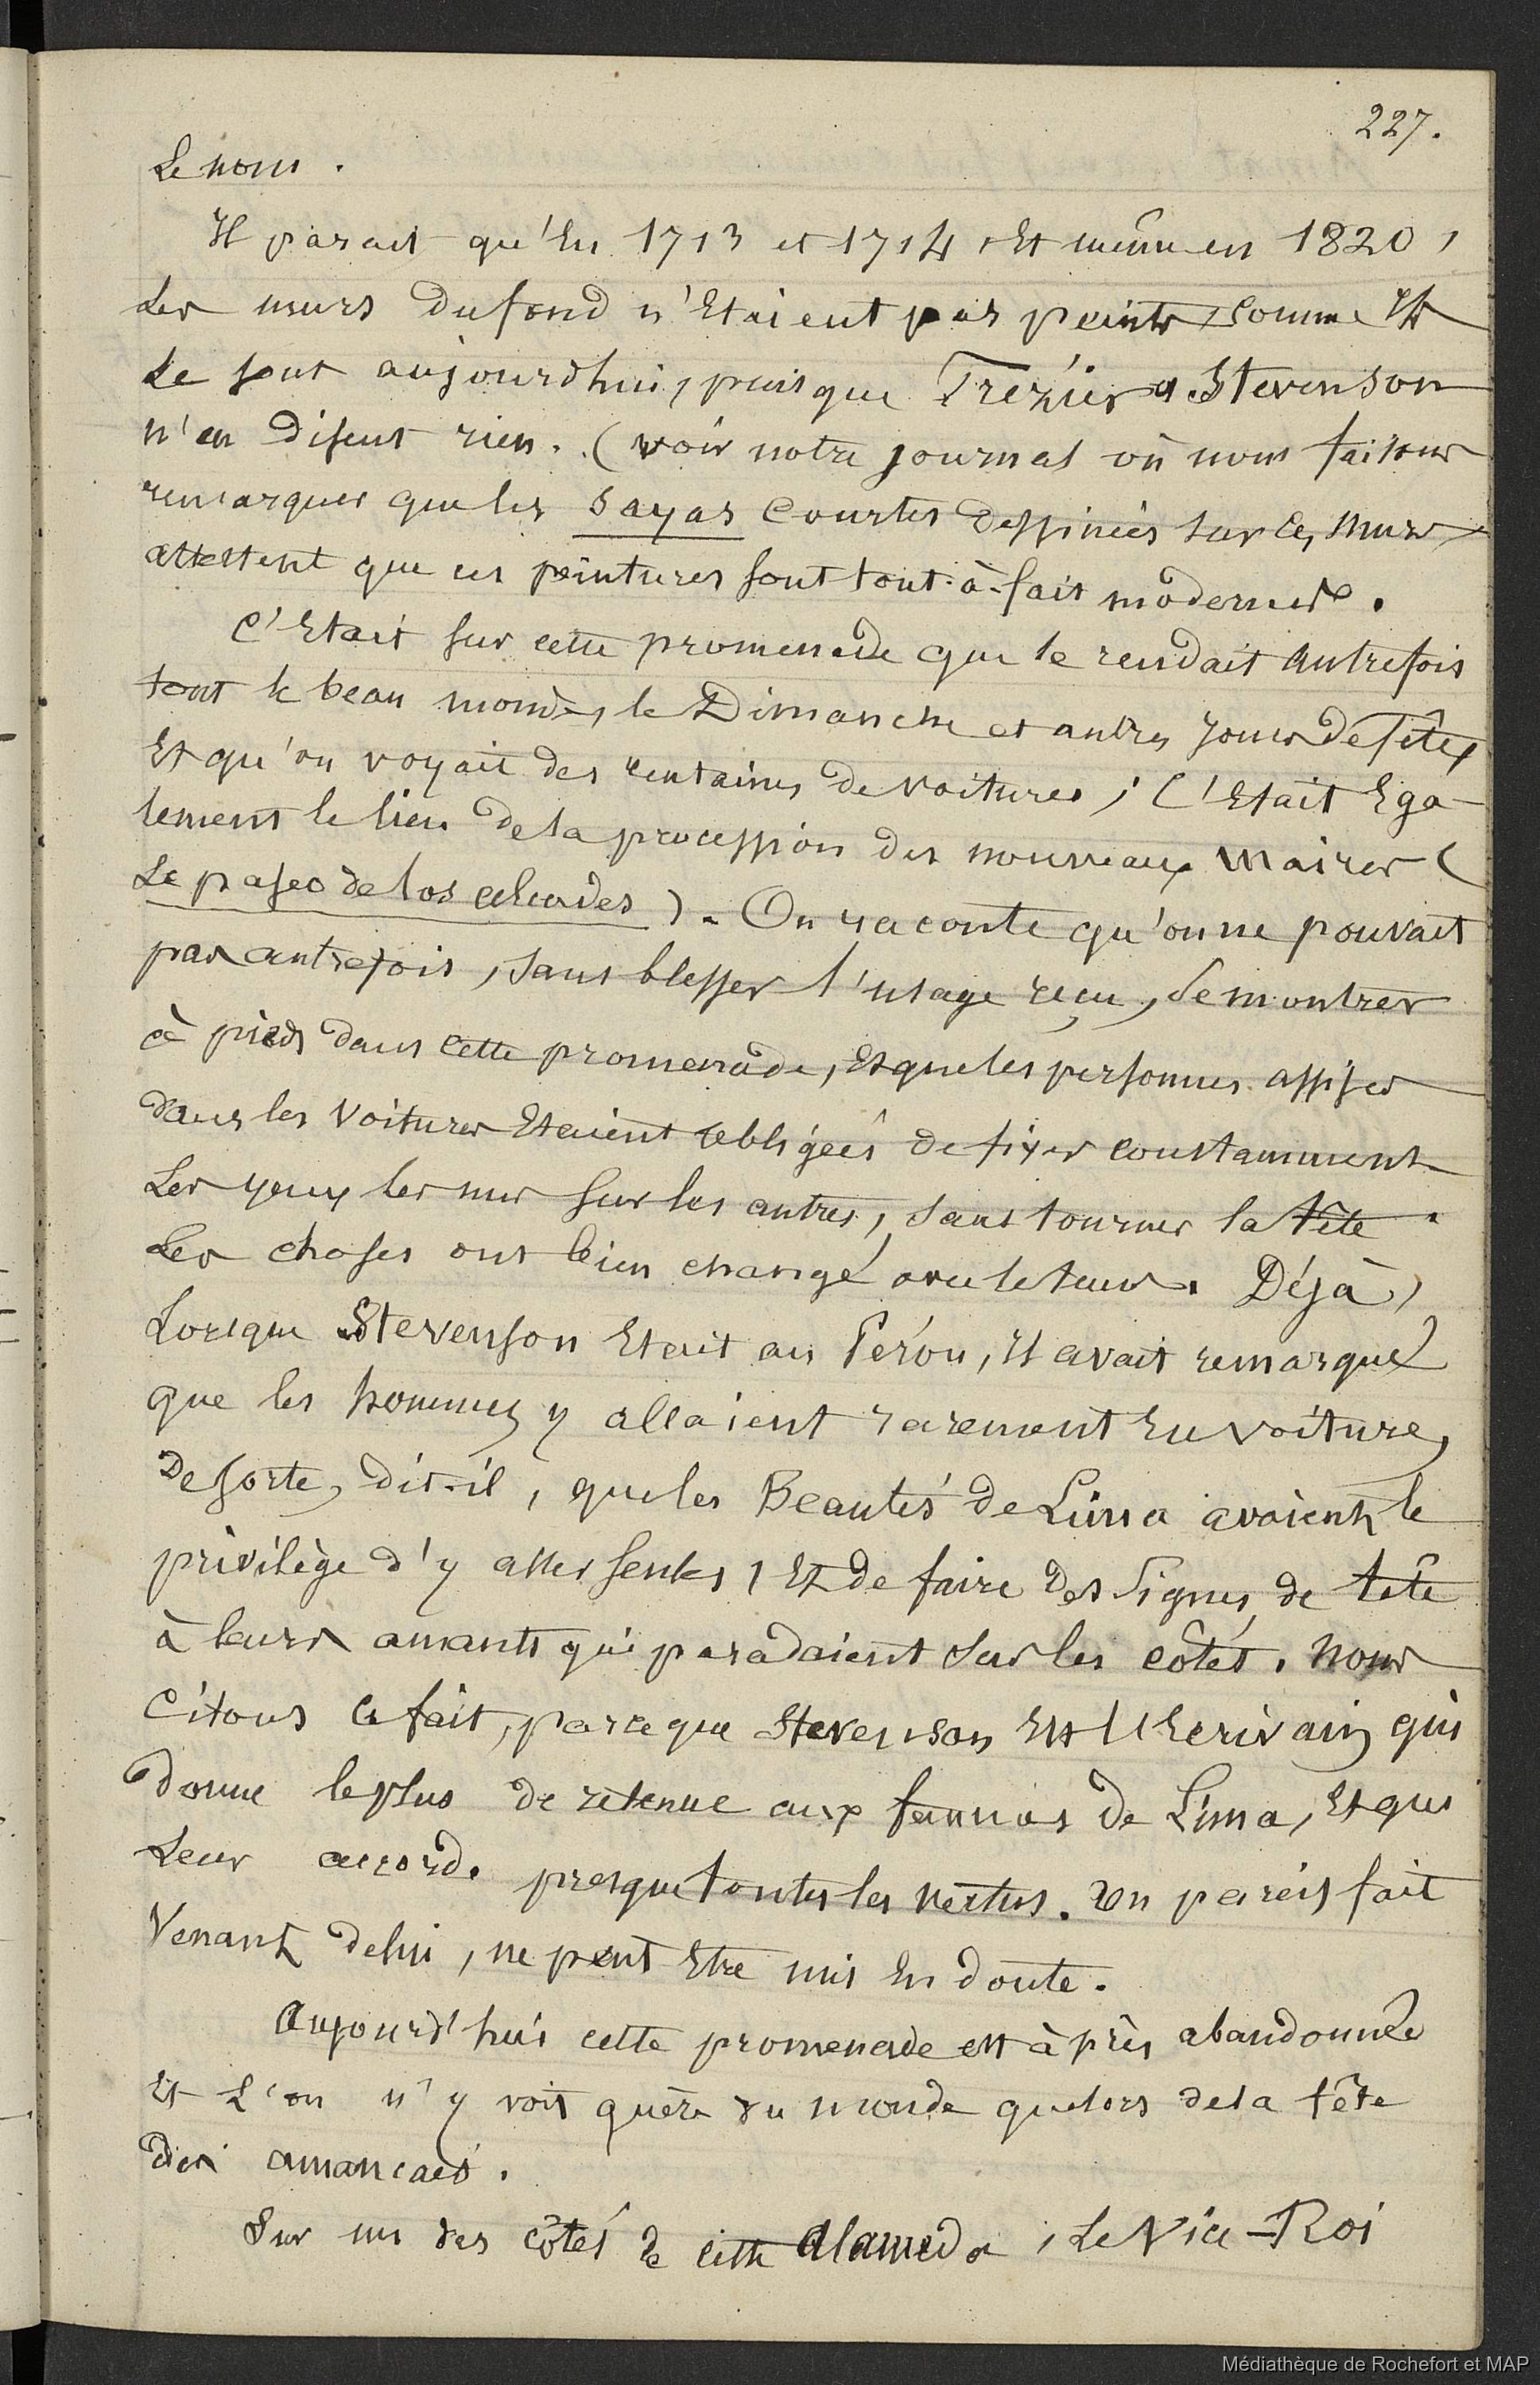 227.
Le nom.
Il parait qu'en 1713 et 1714 et même en 1820,
les murs du fond n'étaient pas peints comme ils
le sont aujourdhui, puisque Frézier et Stevenson
n'en disent rien. (voir notre journal où nous faisons
remarquer que les sayas courtes dessinées sur ces murs
attestent que ces peintures sont tout-à-fait modernes.
C'était sur cette promenade que se rendait autrefois
tout le beau monde, le Dimanche et autres jours de fêtes
et qu'on voyait des centaines de voitures; C'était éga-
lement le lieu de la procession des nouveaux maires (
Le paseo de los alcades). On raconte qu'on ne pouvait
pas autrefois, sans blesser l'usage reçu, se montrer
à pieds dans cette promenade, et que les personnes assises
dans les voitures étaient obligées de fixer constamment
les yeux les uns sur les autres, sans tourner la tête.
Les choses ont bien changé avec le tems. Déjà,
Lorsque Stevenson était au Pérou, il avait remarqué
que les hommes y allaient rarement en voiture,
De sorte, dit-il, que les Beautés de Lima avaient le
privilège d'y aller seules, et de faire des signes de tête
à leurs amants qui paradaient sur les côtés. Nous
citons ce fait, parce que Stevenson est l'écrivain qui
donne le plus de retenue aux femmes de Lima, et qui
leur accorde presque toutes les vertus. Un pareil fait
Venant de lui, ne peut être mis en doute.
Aujourd'hui cette promenade est à près abandonnée
et l'on n'y voit guère du monde que lors de la fête
des amancaes.
Sur un des côtés de cette Alameda, Le Vice-Roi
Médiathèque de Rochefort et MAP